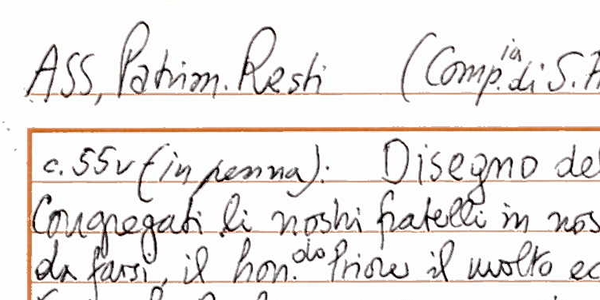 ASS, Patrim. Resti (Comp.ia di S.
c. 55v (in penna): Disegno del
Congregati li nostri fratelli in nos
da farsi, il hon.do Priore il molto ec